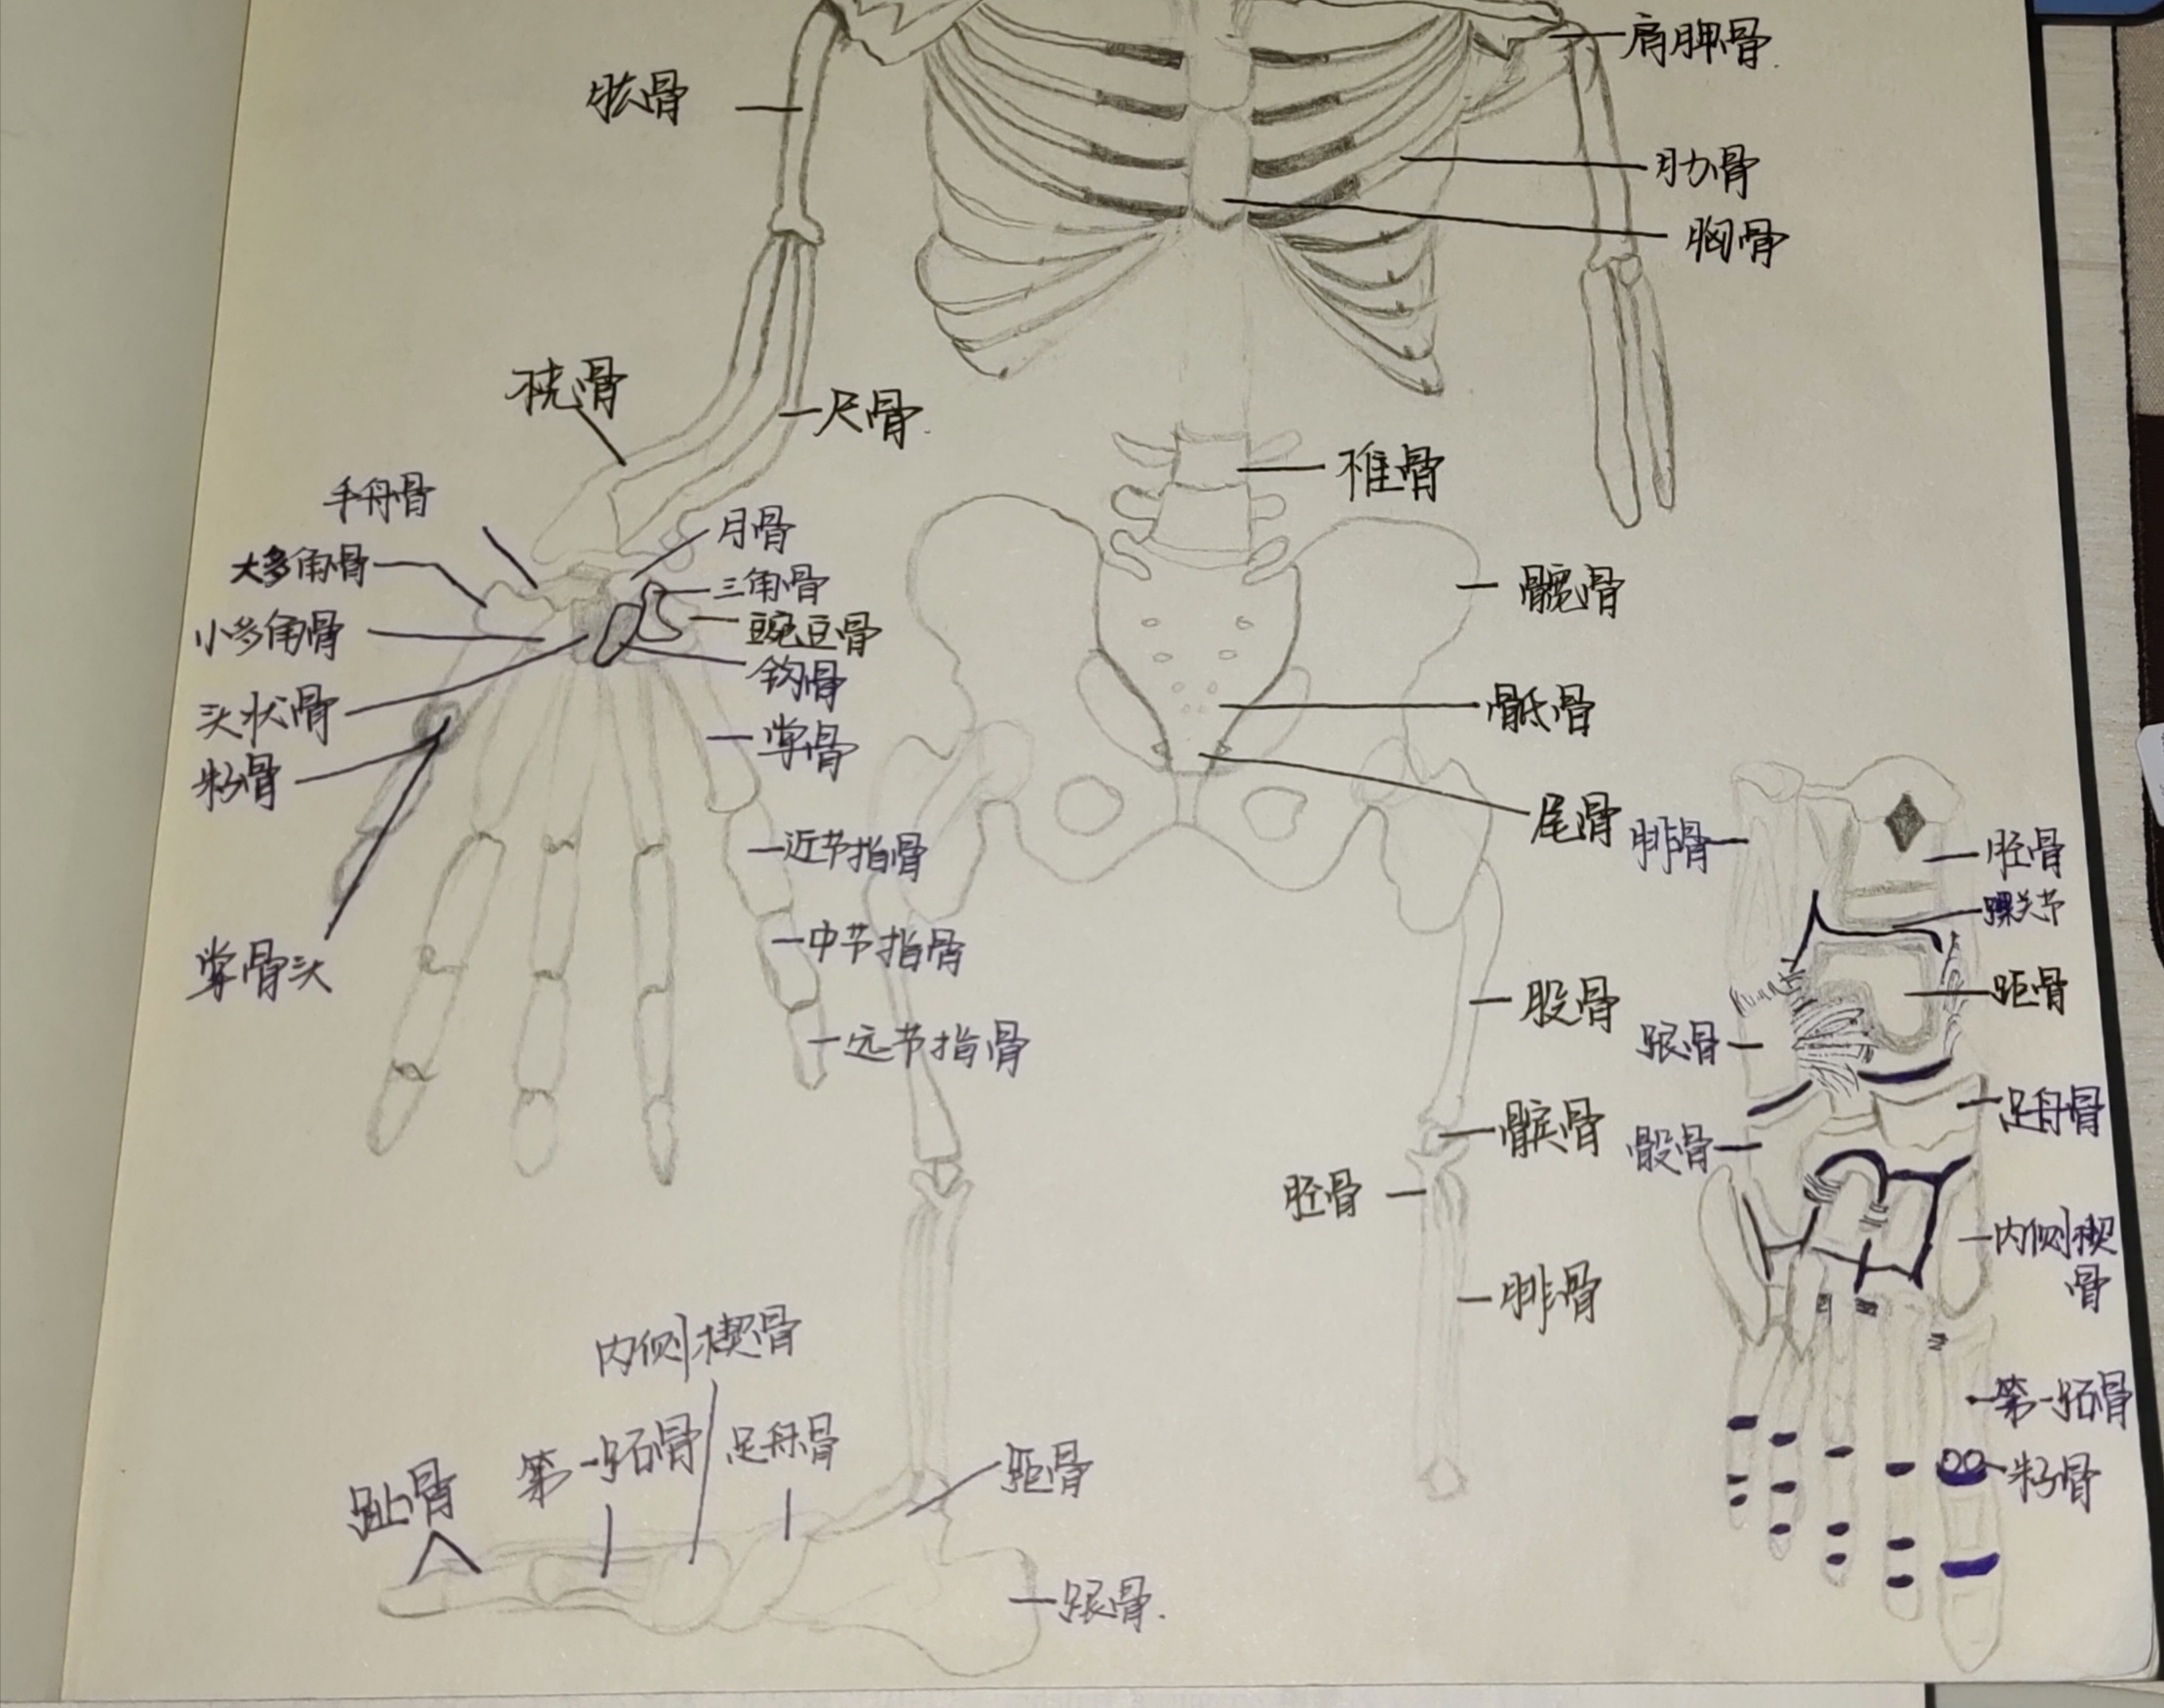 肱骨
肩胛骨
肋骨
胸骨
桡骨
尺骨
椎骨
手舟骨
月骨
大多角骨
三角骨
豌豆骨
小多角骨
钩骨
头状骨
掌骨
籽骨
掌骨头
近节指骨
中节指骨
远节指骨
髋骨
骶骨
尾骨
股骨
髌骨
胫骨
腓骨
腓骨
胫骨
踝关节
距骨
跟骨
足舟骨
骰骨
内侧楔
骨
第一跖骨
籽骨
内侧楔骨
趾骨
第一跖骨
足舟骨
距骨
跟骨.